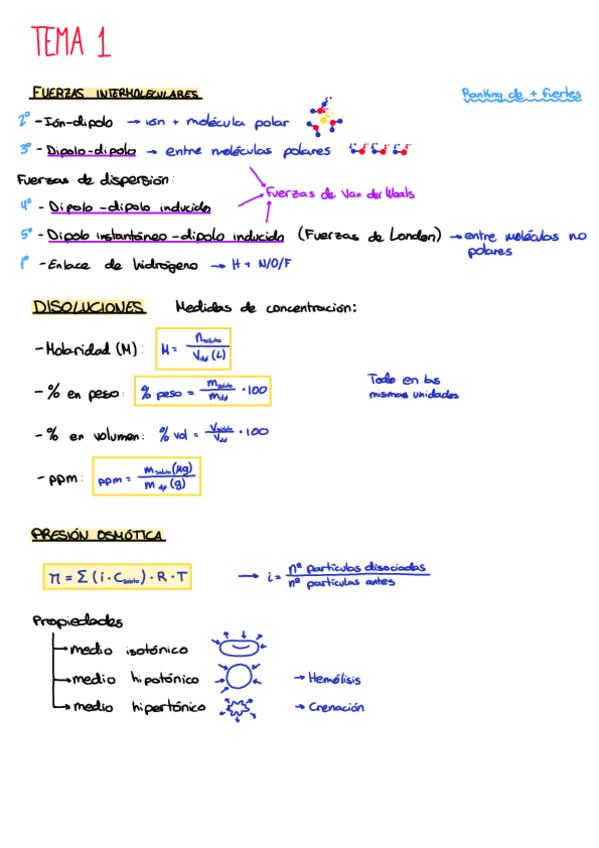 TEMA 1
FUERZAS INTERMOLECULARES
Ranking de + fuertes
2º - Ión-dipolo → ión + molécula polar
3º - Dipolo-dipolo → entre moléculas polares
Fuerzas de dispersión:
Fuerzas de Van der Waals
4º - Dipolo-dipolo inducido
5º - Dipolo instantáneo-dipolo inducido (Fuerzas de London) → entre moléculas no
polares
1º - Enlace de hidrógeno → H + N/O/F
DISOLUCIONES Medidas de concentración:
- Molaridad (M): M = n soluto / V dis (L)
- % en peso: % peso = m soluto / m dis · 100
Todo en las
mismas unidades
- % en volumen: % vol = V soluto / V dis · 100
- ppm: ppm = m soluto (μg) / m dis (g)
PRESIÓN OSMÓTICA
π = Σ (i · C soluto) · R · T → i = nº partículas disociadas / nº partículas antes
Propiedades
→ medio isotónico
→ medio hipotónico → Hemólisis
→ medio hipertónico → Crenación